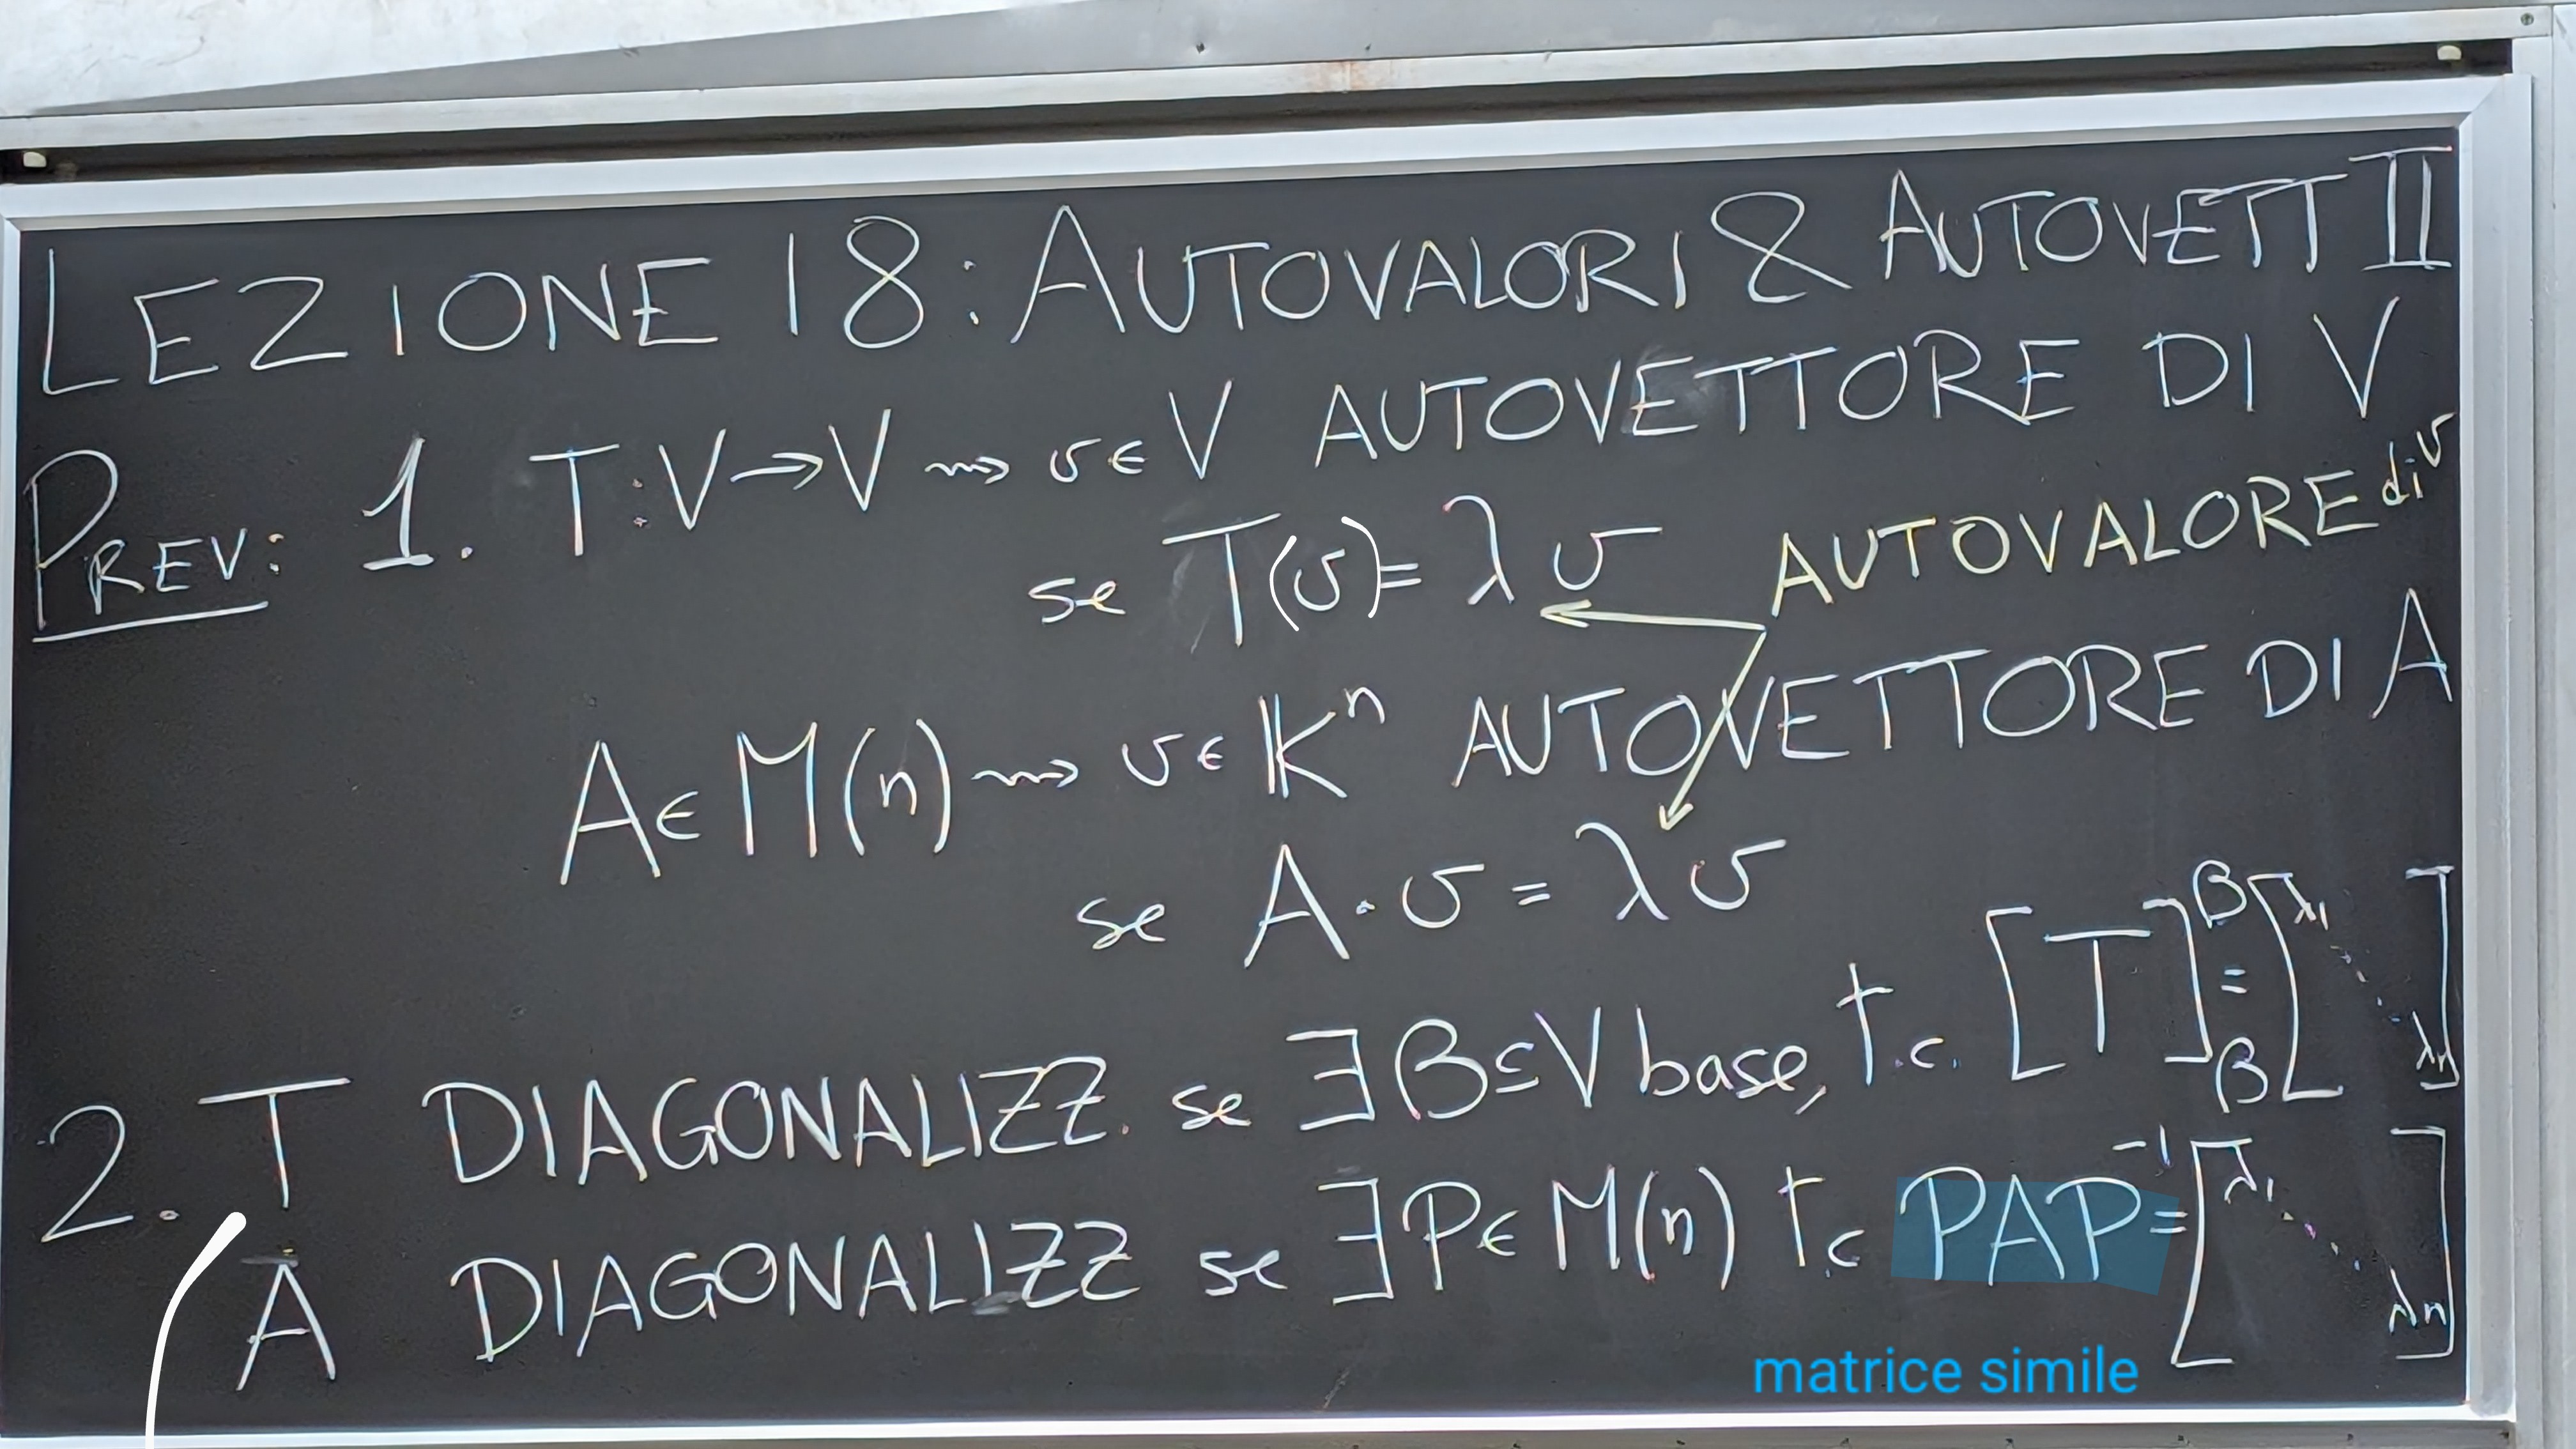 LEZIONE 18: AUTOVALORI & AUTOVETT II
PREV: 1. T:V→V ⇝ v∈V AUTOVETTORE DI V
se T(v)= λv AUTOVALORE di v
A∈M(n) ⇝ v∈𝕂ⁿ AUTOVETTORE DI A
se A·v = λv
2. T DIAGONALIZZ. se ∃B⊆V base, t.c. [T]ᴮ_B = [λ₁ ⋱ λn]
A DIAGONALIZZ se ∃P∈M(n) t.c PAP⁻¹=[λ₁ ⋱ λn]
matrice simile